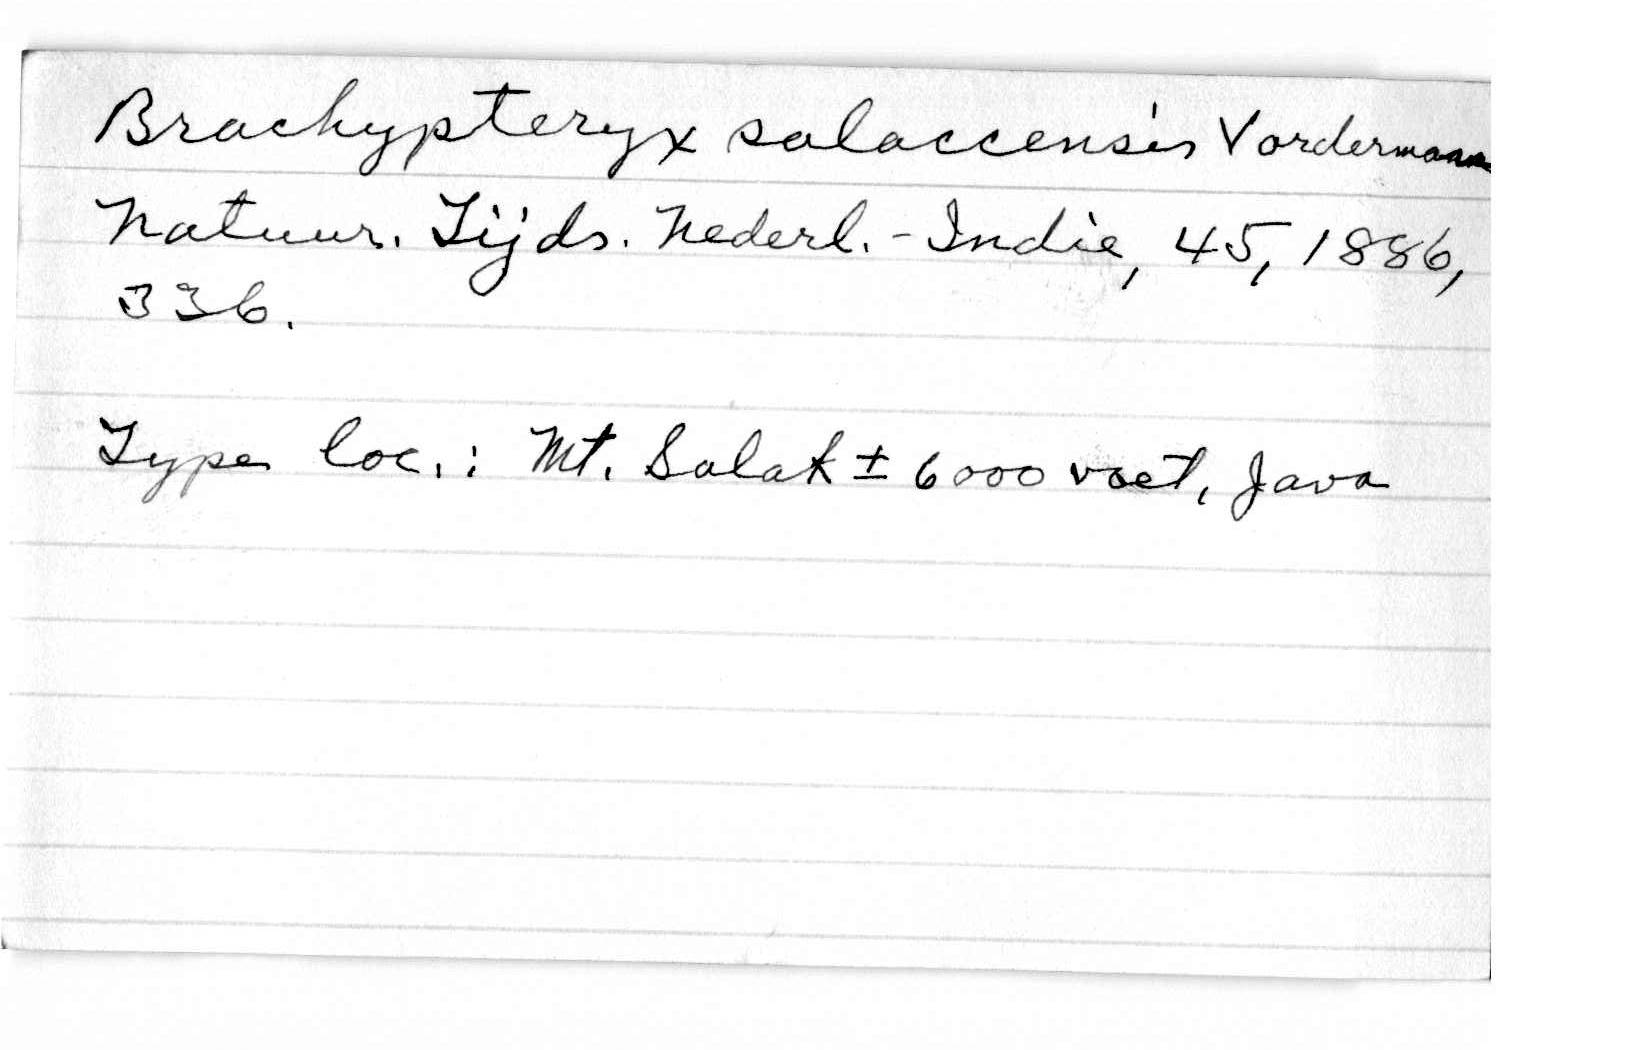 Brachypteryx salaccensis Vordermann
Natuur. Tijds. Nederl.-Indie, 45, 1886,
336.
Type loc.: Mt. Salak ± 6000 voet, Java